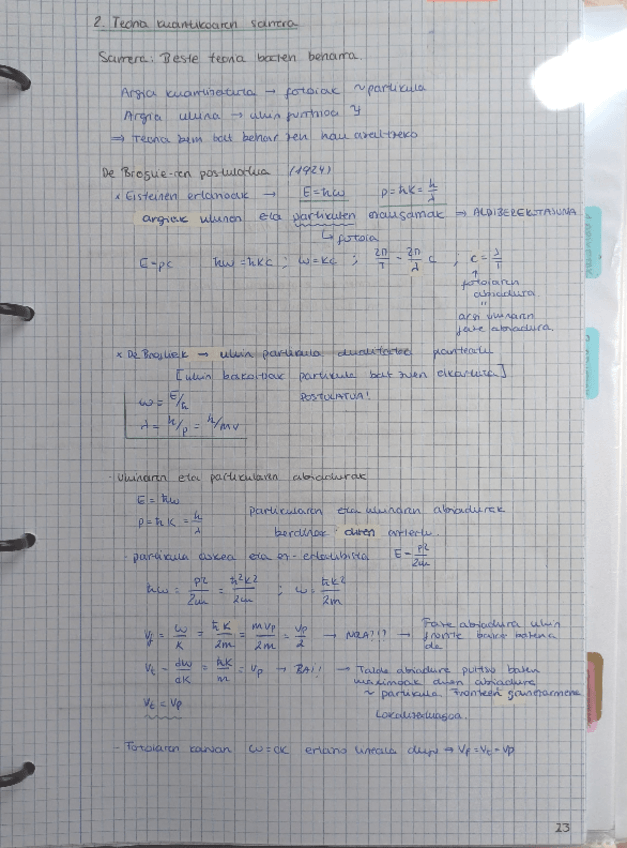 2. Teoria kuantikoaren sarrera
Sarrera: Beste teoria baten beharra.
Argia kuantizatuta → fotoiak ~ partikula
Argia uhina → uhin funtzioa Ψ
⇒ Teoria berri bat behar zen hau azaltzeko
De Broglie-ren postulatua (1924)
× Eisteinen erlazioak → E=ħω p=ħk=h/λ
argiak uhinen eta partikulen ezaugarriak ⇒ ALDIBEREKOTASUNA
↳ fotoia
E=pc ħω=ħkc ; ω=kc ; 2π/T = 2π/λ c ; c=λ/T
↑
fotoiaren
abiadura
"
argi uhinaren
fase abiadura.
× De Brogliek → uhin partikula dualitatea planteatu
[uhin bakoitzak partikula bat zuen elkartuta]
ω = E/ħ POSTULATUA!
λ = h/p = h/mv
· Uhinaren eta partikularen abiadurak
E = ħω
p = ħk = h/λ partikularen eta uhinaren abiadurak
berdinak diren aztertu.
- partikula askea eta ez-erlatibista E = p²/2m
ħω = p²/2m = ħ²k²/2m ; ω = ħk²/2m
Vf = ω/k = ħk/2m = mvp/2m = vp/2 → → Fase abiadura uhin
fronte bakar batena
da
Vt = dω/dk = ħk/m = Vp → BAI!! → Talde abiadura pultsu baten
maximoak duen abiadura
~ partikula. Fronteen gainezarmena
Vt = Vp
lokalizatuagoa.
- Fotoiaren kasuan ω=ck erlazio lineala dugu → Vf=Vt=Vp
23